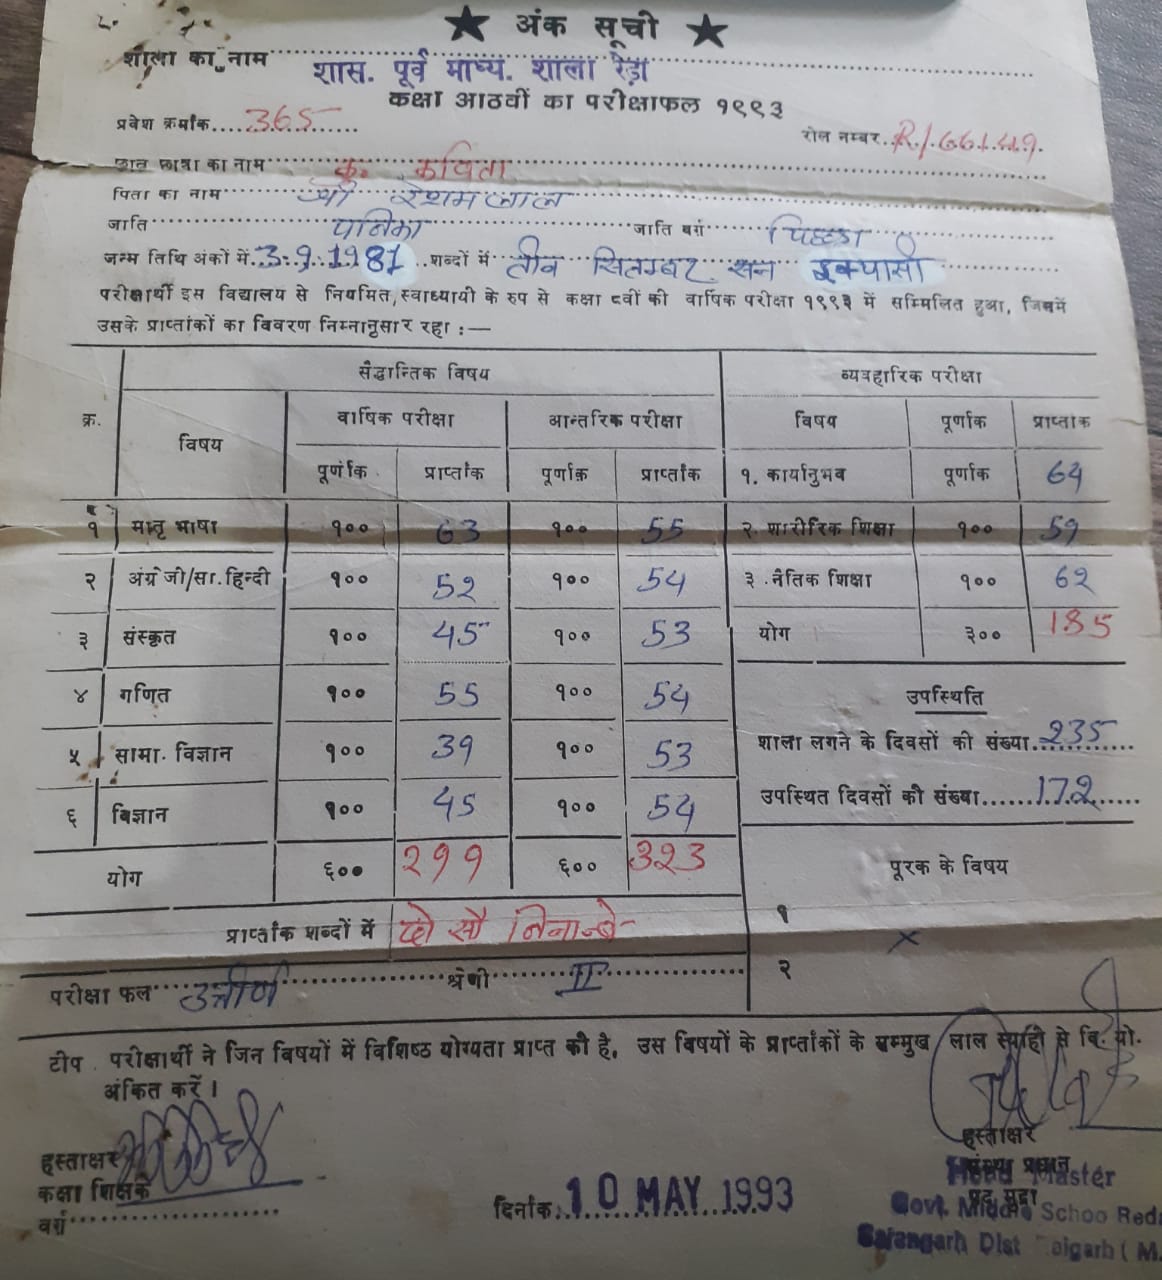 ★ अंक सूची ★
शाला का नाम शास. पूर्व माध्य. शाला रेड़ा
कक्षा आठवीं का परीक्षाफल १९९३
प्रवेश क्रमांक....365 रोल नम्बर..R/66149.
छात्र छात्रा का नाम कु. कविता
पिता का नाम श्री रेशमलाल
जाति पनिका जाति वर्ग पिछड़ा
जन्म तिथि अंकों में 3.9.1981 शब्दों में तीन सितम्बर सन इक्यासी
परीक्षार्थी इस विद्यालय से नियमित, स्वाध्यायी के रुप से कक्षा ८वीं की वार्षिक परीक्षा १९९३ में सम्मिलित हुआ, जिसमें
उसके प्राप्तांकों का विवरण निम्नानुसार रहा :—
सैद्धान्तिक विषय व्यवहारिक परीक्षा
क्र. विषय वार्षिक परीक्षा आन्तरिक परीक्षा विषय पूर्णांक प्राप्तांक
पूर्णांक प्राप्तांक पूर्णांक प्राप्तांक १. कार्यानुभव पूर्णांक 64
१ मातृ भाषा १०० 63 १०० 55 २. शारीरिक शिक्षा १०० 59
२ अंग्रेजी/सा. हिन्दी १०० 52 १०० 54 ३. नैतिक शिक्षा १०० 62
३ संस्कृत १०० 45 १०० 53 योग ३०० 185
४ गणित १०० 55 १०० 54 उपस्थिति
५ सामा. विज्ञान १०० 39 १०० 53 शाला लगने के दिवसों की संख्या..235
६ विज्ञान १०० 45 १०० 54 उपस्थित दिवसों की संख्या......172
योग ६०० 299 ६०० 323 पूरक के विषय
प्राप्तांक शब्दों में दो सौ निनान्बे १ ×
परीक्षा फल उत्तीर्ण श्रेणी II २
टीप . परीक्षार्थी ने जिन विषयों में विशिष्ठ योग्यता प्राप्त की है, उस विषयों के प्राप्तांकों के सम्मुख लाल स्याही से वि. यो.
अंकित करें ।
हस्ताक्षर हस्ताक्षर
कक्षा शिक्षक संस्था प्रधान
वर्ग पद मुद्रा
दिनांक 10 MAY 1993
Head Master
Govt. Middle School Reda
Sarangarh Dist Raigarh ( M.